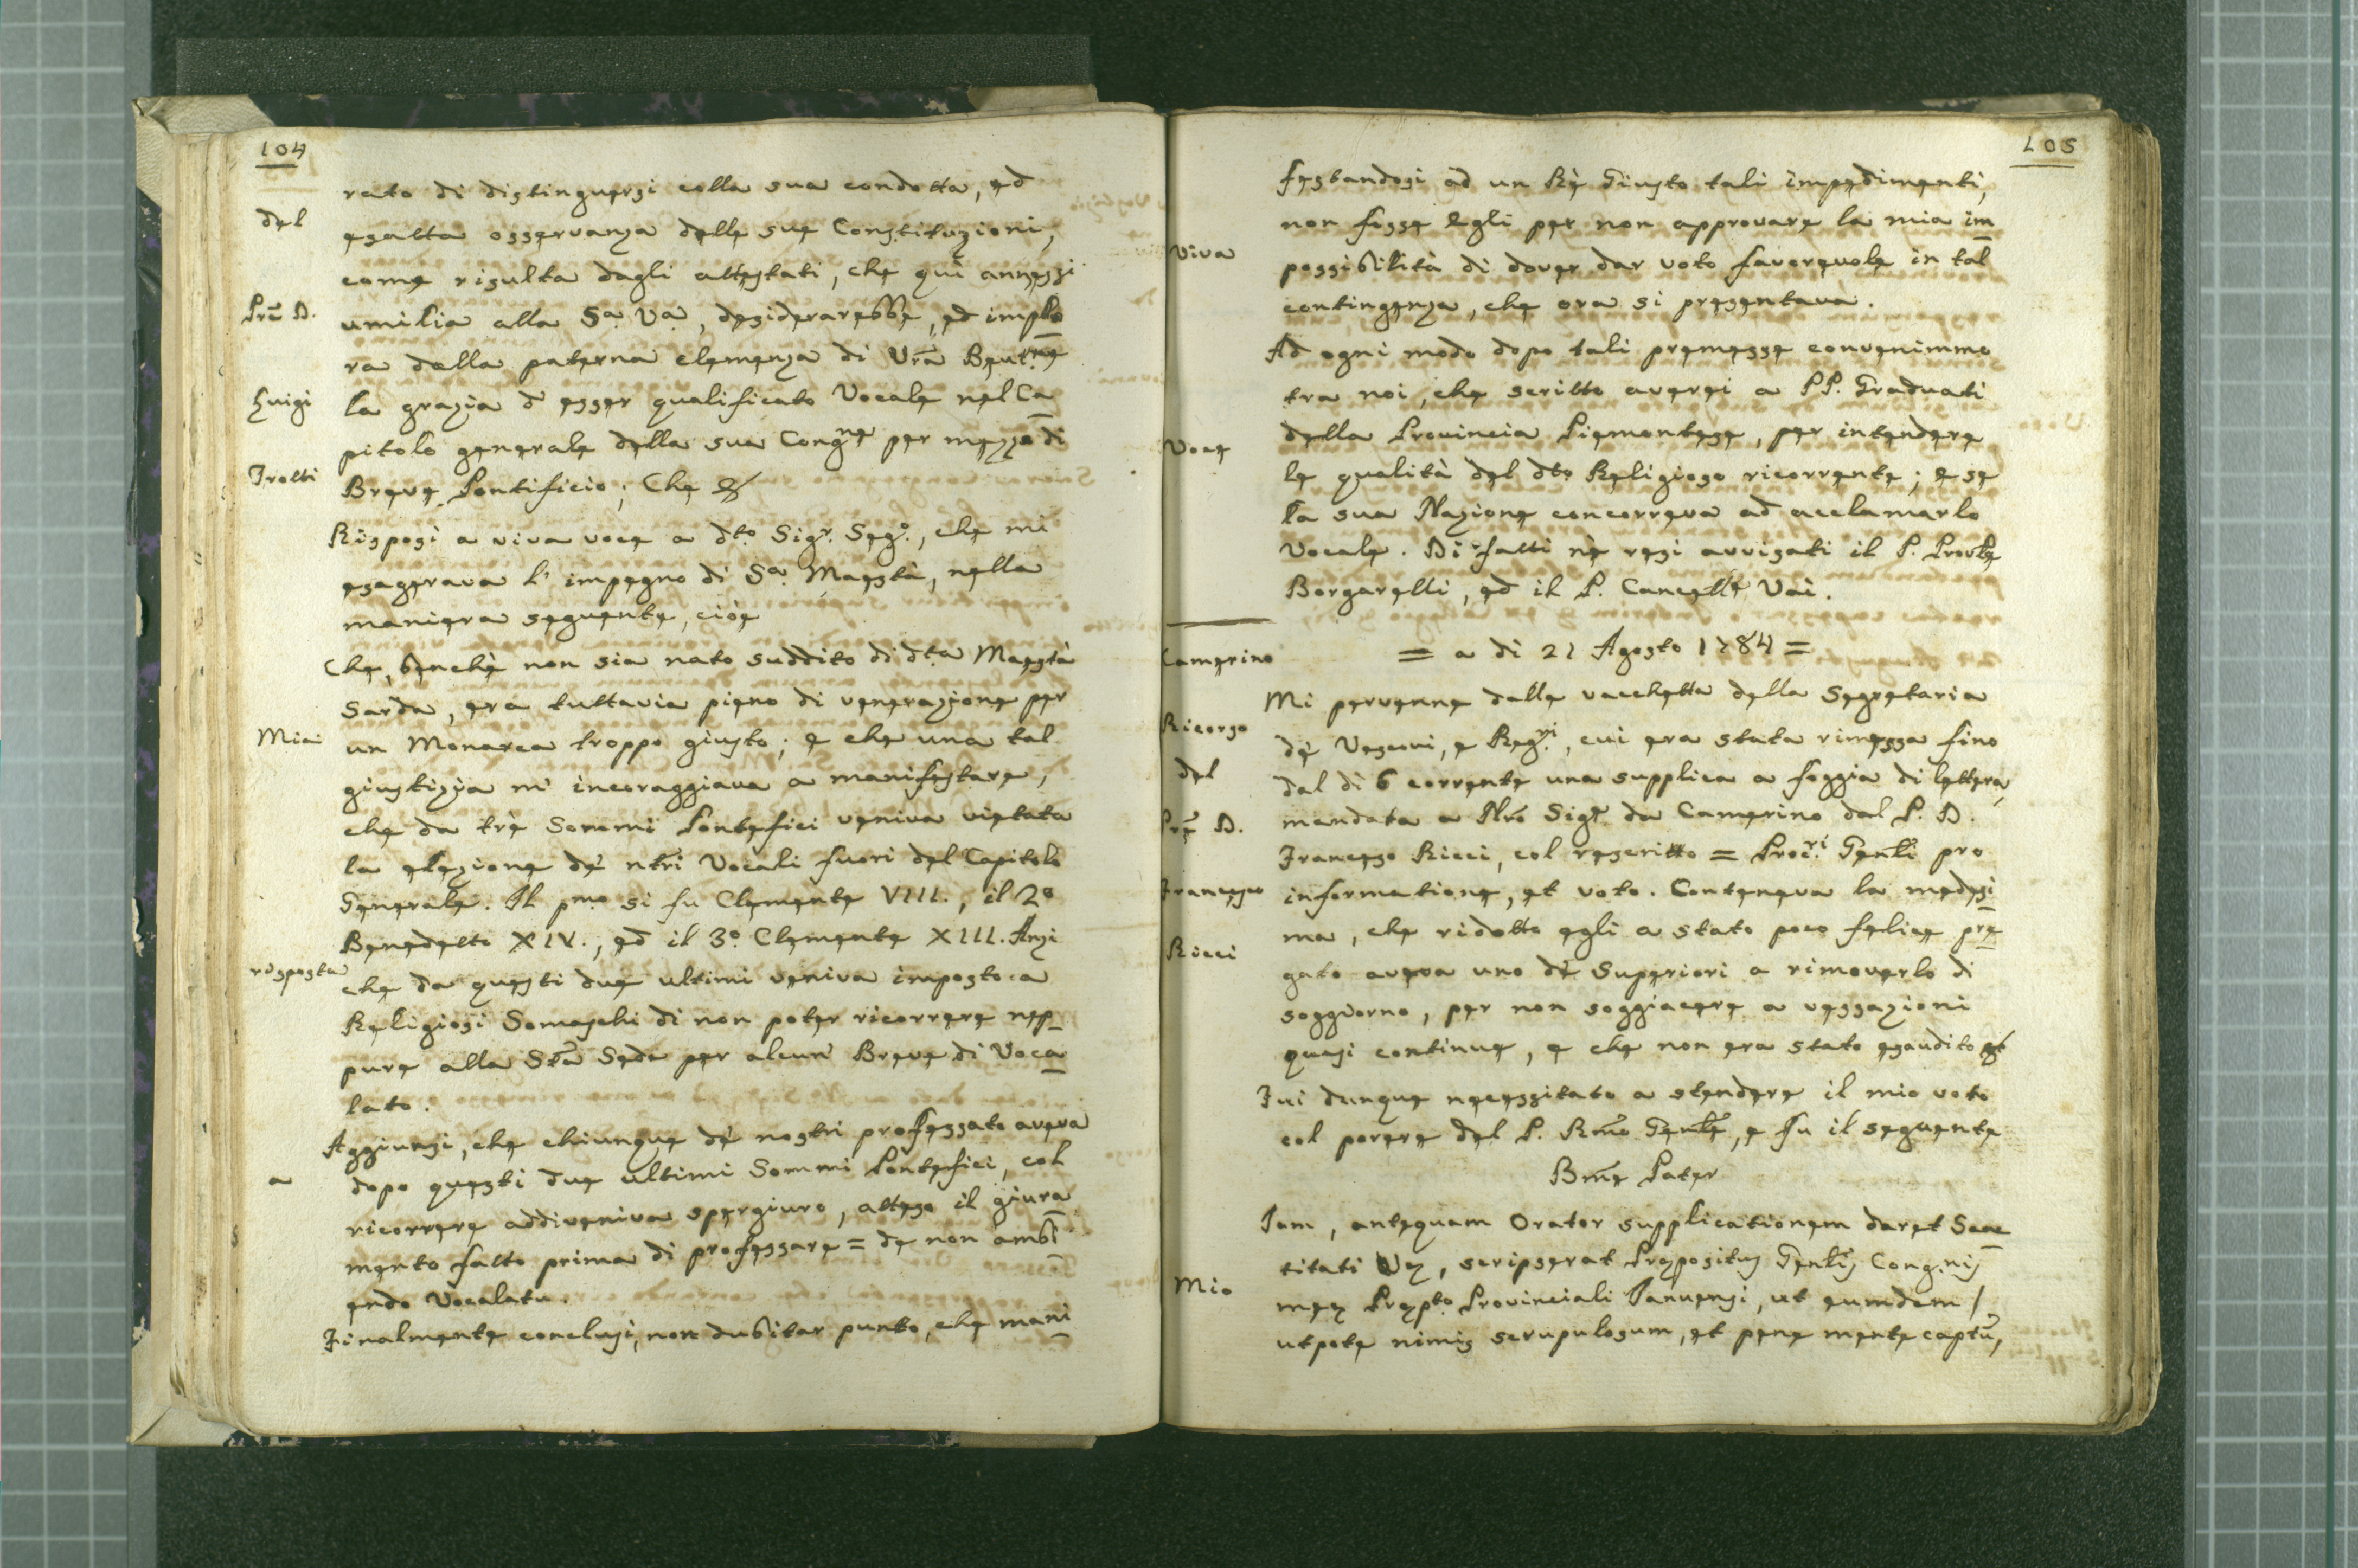 104
rato di distinguersi colla sua condotta, ed
del
esatta osservanza delle sue Constituzioni,
come risulta dagli attestati, che quì annessi
Prē D.
umilia alla Sa. Va., desiderarebbe, ed implo
ra dalla paterna clemenza di Vrā Beat.ne
Luigi
la grazia d' esser qualificato Vocale nel Ca
pitolo generale della sua Congne per mezzo di
Trotti
Breve Pontificio; Che &
Risposi a viva voce a dto. Sigr. Sego., che mi
esagerava l' impegno di Sa. Maestà, nella
maniera seguente, cioè
Che, benchè non sia nato suddito di dta. Maestà
Sarda, era tuttavia pieno di venerazione per
Mia
un Monarca troppo giusto; e che una tal
giustizia m' incoraggiava a manifestare,
che da trè Sommi Pontefici veniva vietata
la elezione de' ntrī Vocali fuori del Capitolo
Generale. Il pmo si fu Clemente VIII., il 2o
Benedetto XIV., ed il 3o. Clemente XIII. Anzi
risposta
che da questi due ultimi veniva imposto a
Religiosi Somaschi di non poter ricorrere nep
pure alla Stā Sede per alcun Breve di Voca
lato.
Aggiunsi, che chiunque de' nostri professato aveva
a
dopo questi due ultimi Sommi Pontefici, col
ricorrere addiveniva spergiuro, atteso il giura
mento fatto prima di professare = de non ambi
endo Vocalatu.
Finalmente conclusi, non dubitar punto, che mani
105
festandosi ad un Rè Giusto tali impedimenti,
non fosse Egli per non approvare la mia im
Viva
possibilità di dover dar voto favorevole in tal
contingenza, che ora si presentava.
Ad ogni modo dopo tali premesse convenimmo
tra noi, che scritto averei a PP. Graduati
Voce
della Provincia Piemontese, per intendere
le qualità del dto. Religioso ricorrente; e se
la sua Nazione concorreva ad acclamarlo
Vocale. Di fatti nè resi avvisati il P. Provle
Borgarelli, ed il P. Cancelle Vai.
= a dì 21 Agosto 1784 =
Camerino
Mi pervenne dalle vacchetta della Segretaria
Ricorso
de' Vescovi, e Reg.ri, cui era stata rimessa fino
del
dal dì 6 corrente una supplica a foggia di lettera,
Prē D.
mandata a Nrō Sigr. da Camerino dal P. D.
Francesco Ricci, col rescritto = Proc.ri Genli pro
Francesco
informatione, et voto. Conteneva la medesi
Ricci
ma, che ridotto egli a stato poco felice pre
gato aveva uno de' Superiori a rimoverlo di
soggiorno, per non soggiacere a vessazioni
quasi continue, e che non era stato esaudito &
Fui dunque necessitato a stendere il mio voto
col parere del P. Rmō Genle, e fu il seguente
Bmē Pater
Iam, antequam Orator supplicationem daret Sanc
titati Vę, scripserat Prępositus Genlis Cong.nis
Mio
meę Prępto. Provinciali Ianuensi, ut eumdem /
utpote nimis scrupulosum, et pene mente captū,